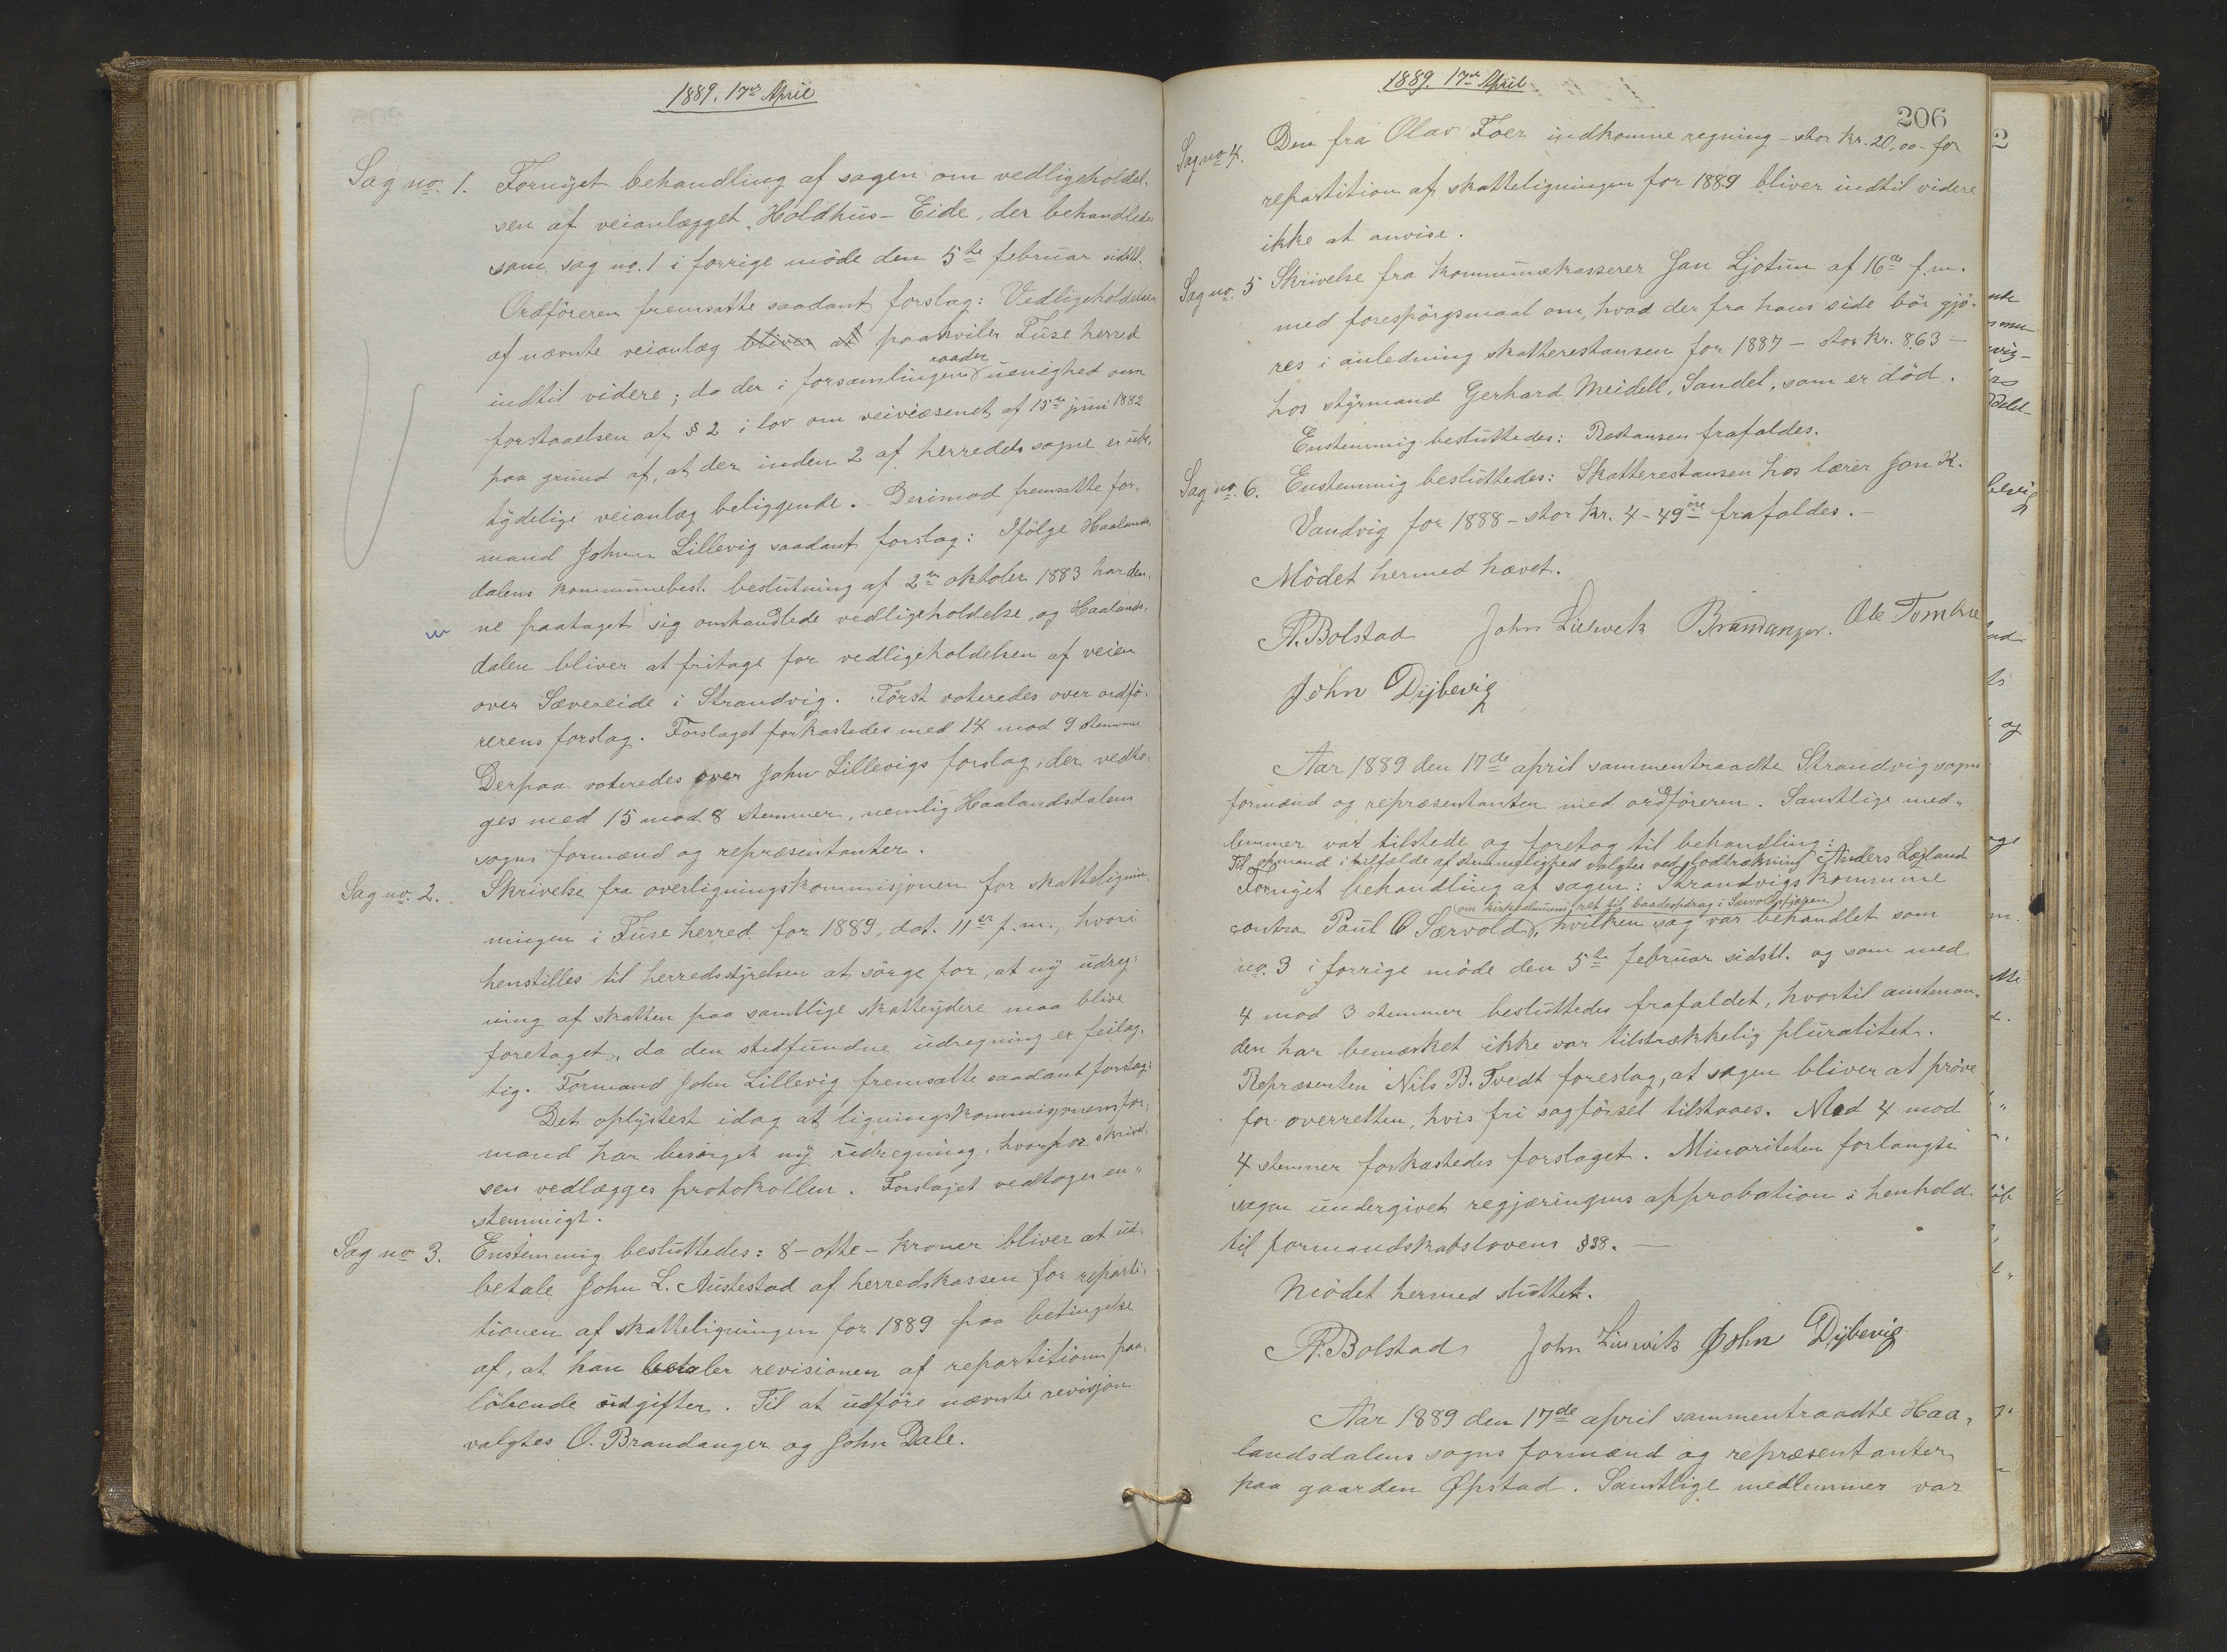 1889. 17de April
Sag no. 1. Fornyet behandling af sagen om vedligeholdel-
sen af veianlægget „Holdhus-Eide, der behandledes
som sag no. 1 i forrige möde den 5te februar sidstl.
Ordföreren fremsatte saadant forslag: Vedligeholdelsen
af nævnte veianlæg bliver at paahviler Fuse herred
indtil videre; da der i forsamlingen raader uenighed om
forstaaelsen af § 2 i lov om veivæsenet af 15de juni 1882
paa grund af, at der inden 2 af herredets sogne er ube-
tydelige veianlæg beliggende. - Derimod fremsatte for-
mand John Lillevig saadant forslag: Ifölge Haalands-
dalens kommunebest. beslutning af 2den oktober 1883 har den-
ne paataget sig omhandlede vedligeholdelse, og Haalands-
dalen bliver at fritage for vedligeholdelsen af veien
over Sævereide i Strandvig. Först voteredes over ordfö-
rerens forslag. Forslaget forkastedes med 14 mod 9 stemmer
Derpaa voteredes over John Lillevigs forslag, der vedto-
ges med 15 mod 8 stemmer, nemlig Haalandsdalens
sogns formænd og repræsentanter.
Sag no. 2. Skrivelse fra overligningskommisjonen for skattelignin-
ningen i Fuse herred for 1889, dat. 11te f.m., hvori
henstilles til herredsstyrelsen at sörge for, at ny udreg-
ning af skatten paa samtlige skatteydere maa blive
foretaget, da den stedfundne udregning er feilag-
tig. Formand John Lillevig fremsatte saadant forslag:
Det oplystest idag at ligningskommisjonens for-
mand har besörget ny udregning, hvorfor skrivel-
sen vedlægges protokollen. Forslaget vedtoges en-
stemmigt.
Sag no 3. Enstemmig besluttedes: 8 - otte - kroner bliver at ud-
betale John L. Austestad af herredskassen for reparti-
tionen af skatteligningen for 1889 paa betingelse
af, at han betaler revisionen af repartitionen paa-
löbende udgifter. Til at udföre nævnte revisjon
valgtes O. Brandanger og John Dale.
1889. 17de April
206
Sag no 4. Den fra Olav Foer indkomne regning - stor kr. 20,00 - for
repartition af skatteligningen for 1889 bliver indtil videre
ikke at anvise.
Sag no. 5 Skrivelse fra kommunekasserer Jan Ljotun af 16de f.m.
med forespörgsmaal om, hvad der fra hans side bör gjö-
res i anledning skatterestansen for 1887 - stor kr. 8,63 -
hos styrmand Gerhard Meidell, Sandel, som er död.
Enstemmig besluttedes: Restansen frafaldes.
Sag no. 6. Enstemmig besluttedes: Skatterestansen hos lærer Jon K.
Vandvig for 1888 - stor kr. 4-49 öre frafaldes. -
Mödet hermed hævet.
A. Bolstad John Brandanger. Ole Tombre
John Dybevig
Aar 1889 den 17de april sammentraadte Strandvig sogns
formænd og repræsentanter med ordföreren. Samtlige med-
lemmer vart tilstede og foretog til behandling:
Til opmand i tilfælde af stemmelighed valgtes ved lodtrækning Anders Lægland
Fornyet behandling af sagen: Strandvigs kommune
(om kirkealmuens ret til baadeopdrag i Særvoldsfjæren)
contra Paul O Særvold, hvilken sag var behandlet som
no. 3 i forrige möde den 5te februar sidstl. og som med
4 mod 3 stemmer besluttedes frafaldet, hvortil amtman-
den har bemærket ikke var tilstrækkelig pluralitet.
Repræsenten Nils B. Tvedt foreslog, at sagen bliver at pröve
for overretten, hvis fri sagförsel tilstaaes. Med 4 mod
4 stemmer forkastedes forslaget. Minoriteten forlangte
sagen undergivet regjæringens approbation i henhold
til formandskabslovens § 38. -
Mödet hermed sluttet.
A. Bolstad John John Dybevig
Aar 1889 den 17de april sammentraadte Haa-
landsdalens sogns formænd og repræsentanter
paa gaarden Øpstad. Samtlige medlemmer var